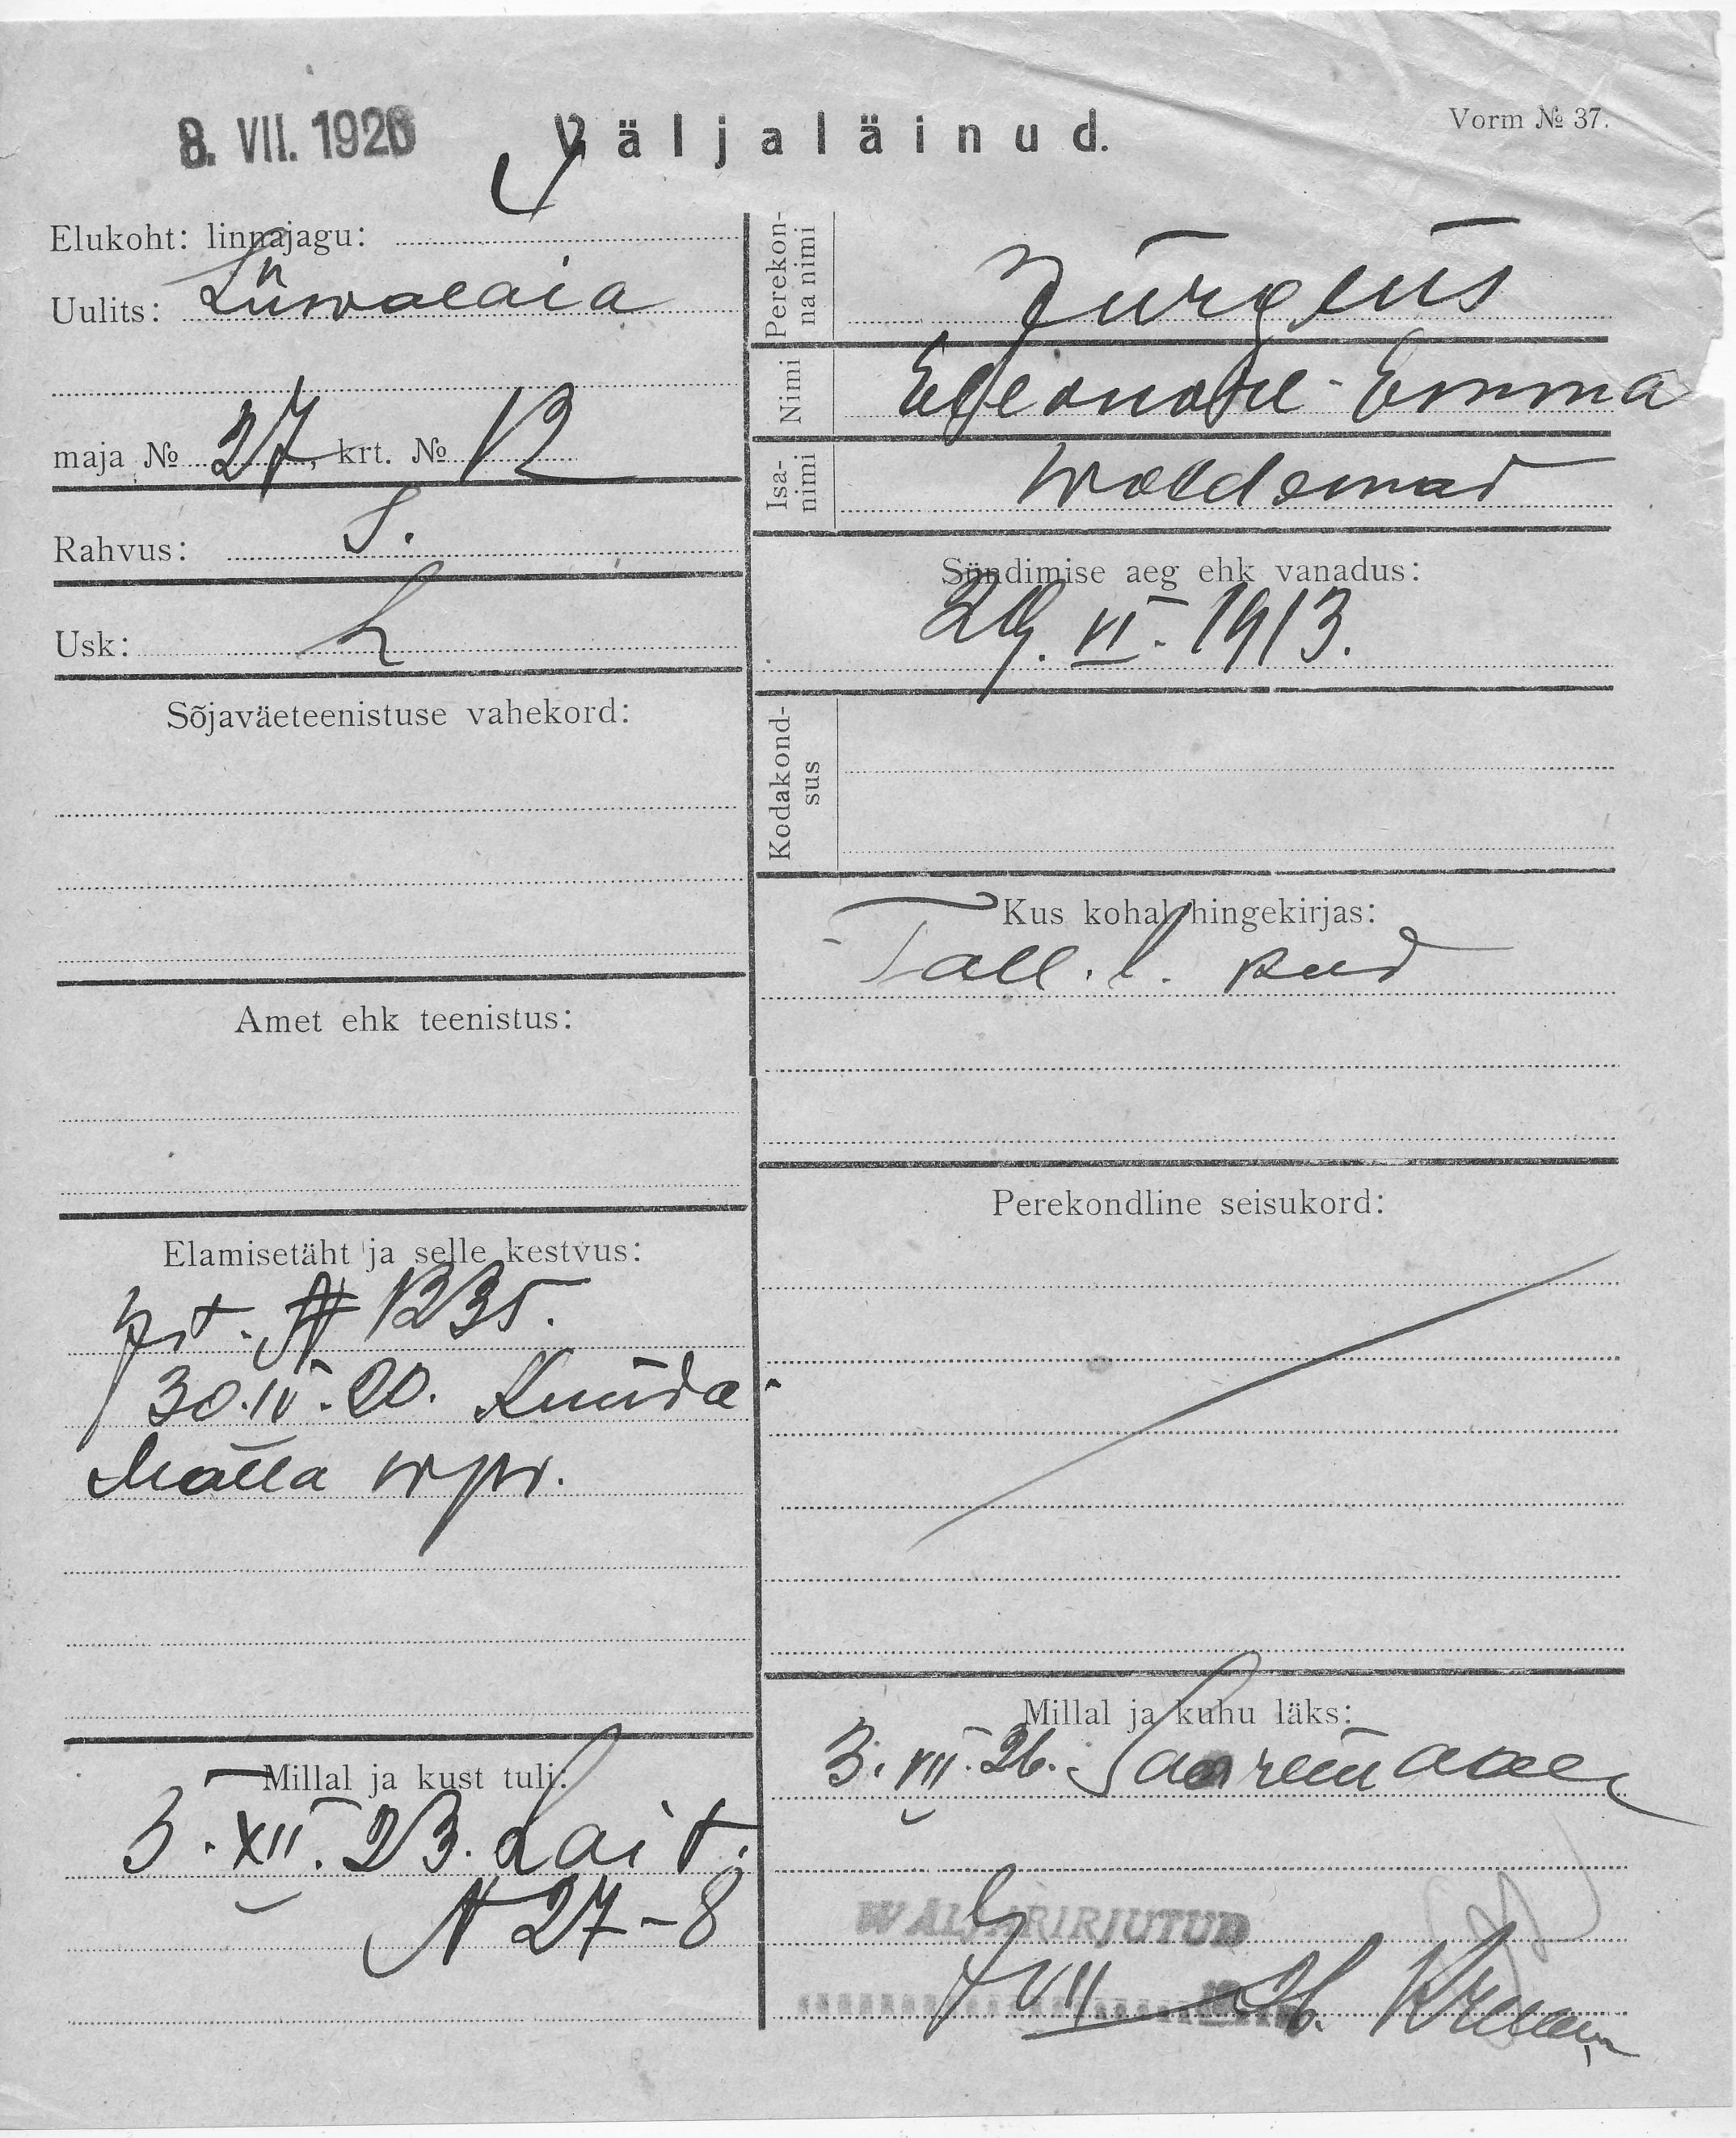 8. VII. 1926
Väljaläinud.
Vorm № 37.
Elukoht: linnajagu:
Uulits: Liiwalaia
maja № 27, krt. № 12
Rahvus: S.
Usk: L
Sõjaväeteenistuse vahekord:
Amet ehk teenistus:
Elamisetäht ja selle kestvus:
№ 1235.
30.IV.20. Kuuda-
Mälla
Millal ja kust tuli:
3. XII. 23. Lait.
N 27-8
Perekon-
na nimi
Jürgens
Nimi
Eleonore-Emma
Isa-
nimi
Woldemar
Sündimise aeg ehk vanadus:
29. VI. 1913.
Kodakond-
sus
Kus kohal hingekirjas:
Tall. l.
Perekondline seisukord:
Millal ja kuhu läks:
3. VII. 26. Saaremaale
WÄLJAKIRJUTUD
VII 26.